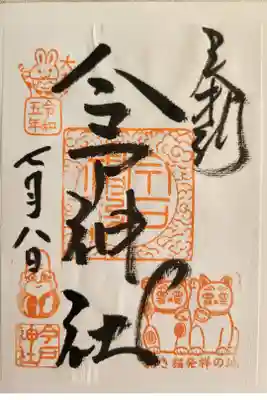 奉拝
今戸神社
令和
五年
七月八日
今戸
神社
き猫発祥の地